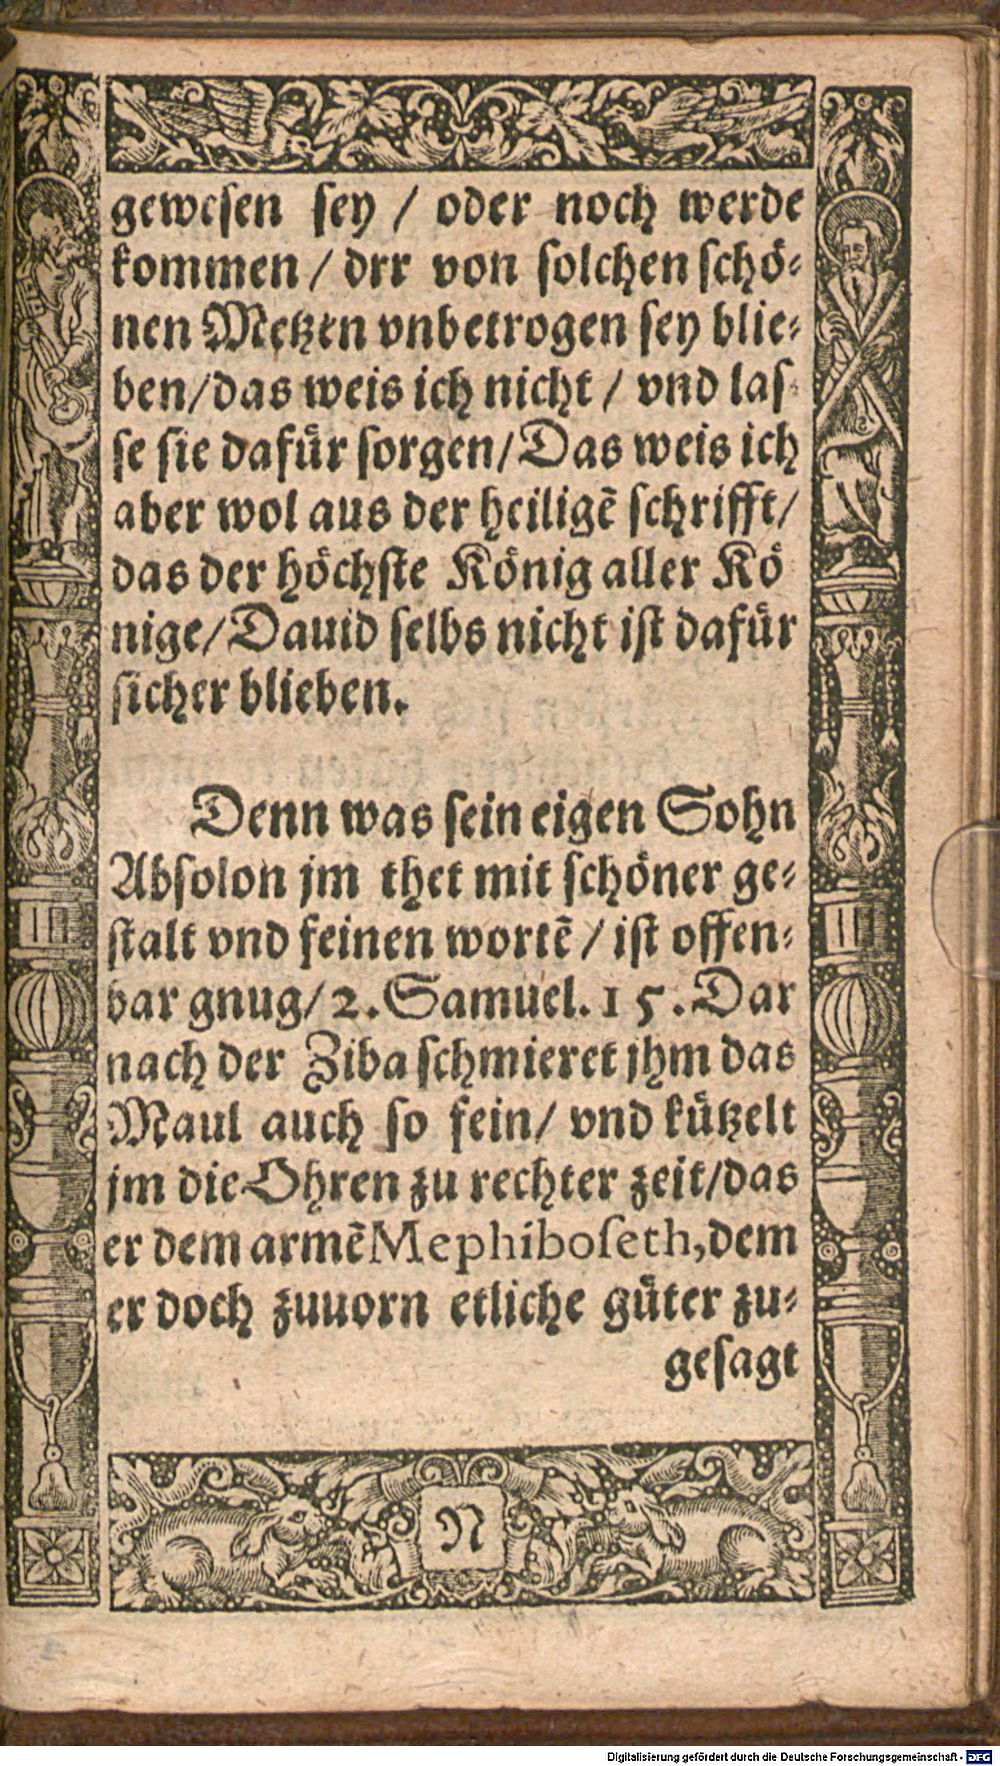 gewesen sey / oder noch werde
kommen / drr von solchen schö⸗
nen Metzen vnbetrogen sey blie⸗
ben/das weis ich nicht / vnd las⸗
se sie dafür sorgen/Das weis ich
aber wol aus der heiligẽ schrifft/
das der höchste König aller Kö
nige/Dauid selbs nicht ist dafür
sicher blieben.
Denn was sein eigen Sohn
Absolon jm thet mit schöner ge⸗
stalt vnd feinen wortẽ / ist offen⸗
bar gnug/2.Samuel.15.Dar
nach der Ziba schmieret jhm das
Maul auch so fein/ vnd kützelt
jm die Ohren zu rechter zeit/das
er dem armẽ Mephiboseth,dem
er doch zuuorn etliche güter zu⸗
gesagt
N
Digitalisierung gefördert durch die Deutsche Forschungsgemeinschaft - DFG